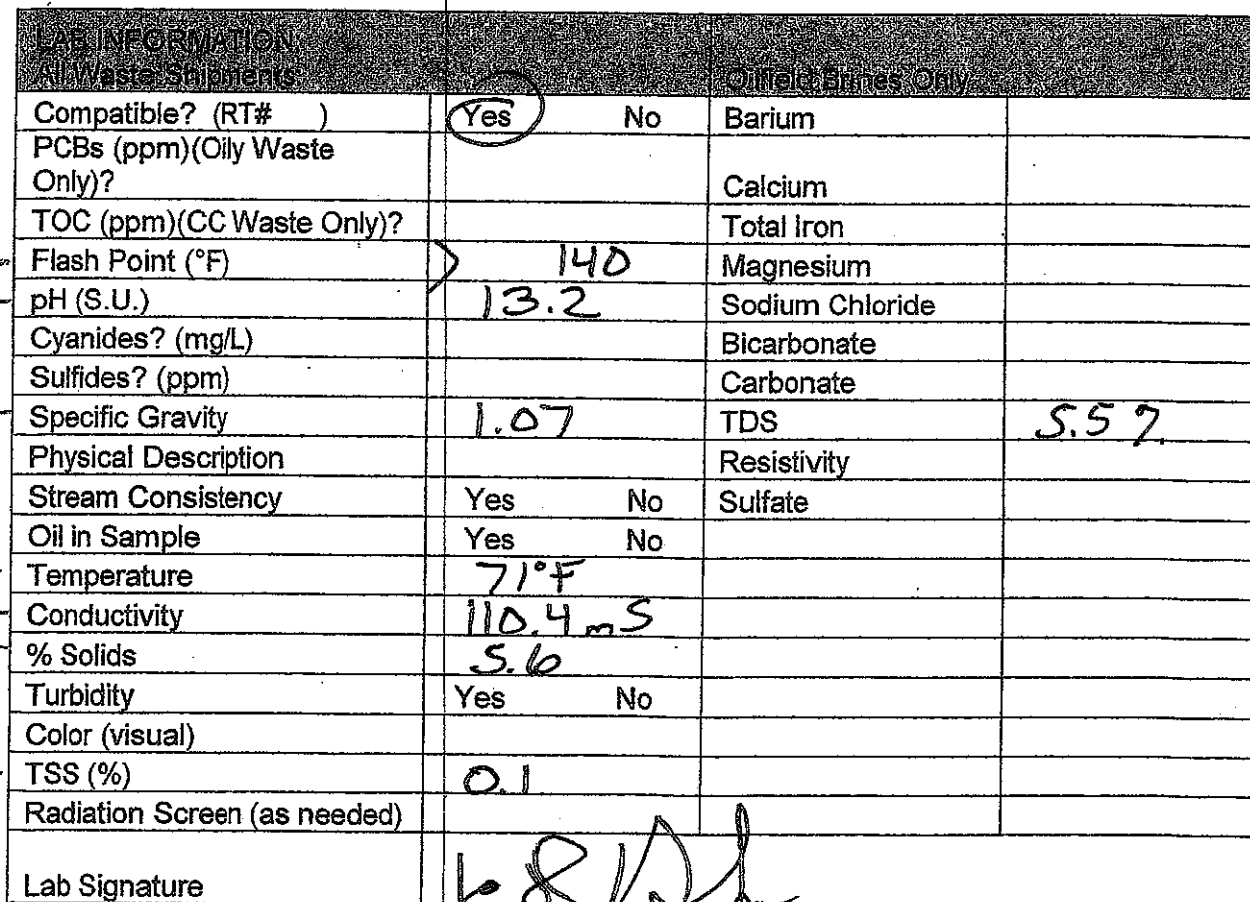 LAB INFORMATION
All Waste Shipments: Oilfield Brines Only
Compatible? (RT# ) Yes No Barium
PCBs (ppm)(Oily Waste
Only)? Calcium
TOC (ppm)(CC Waste Only)? Total Iron
Flash Point (°F) > 140 Magnesium
pH (S.U.) 13.2 Sodium Chloride
Cyanides? (mg/L) Bicarbonate
Sulfides? (ppm) Carbonate
Specific Gravity 1.07 TDS 5.5
Physical Description Resistivity
Stream Consistency Yes No Sulfate
Oil in Sample Yes No
Temperature 71°F
Conductivity 110.4 mS
% Solids 5.6
Turbidity Yes No
Color (visual)
TSS (%) 0.1
Radiation Screen (as needed)
Lab Signature